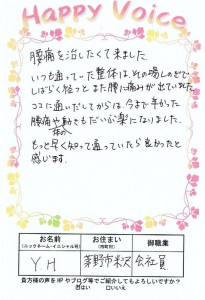 Happy Voice
腰痛を治したくて来ました。
いつも通っていた整体は、その場しのぎで
しばらく経つとまた腰に痛みが出ていました
ココに通いだしてからは、今まで辛かった
腰痛や体の動きもだいぶ楽になりました。
もっと早く知って通っていたら良かったと
感じます。
お名前
(ニックネーム・イニシャル可)
お住まい
(市町村)
御職業
Y.H
茅野市米沢
会社員
貴方様の声をHPやブログ等でご紹介してもよろしいですか?
はい 口いいえ